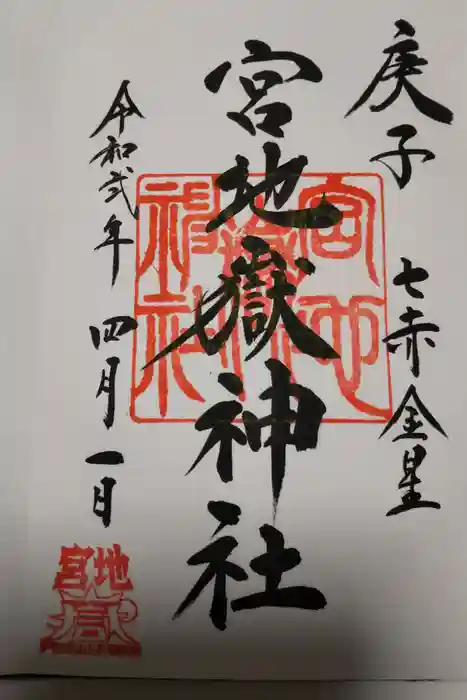 庚子 七赤金星
宮地嶽神社
令和弐年 四月一日
宮地
嶽